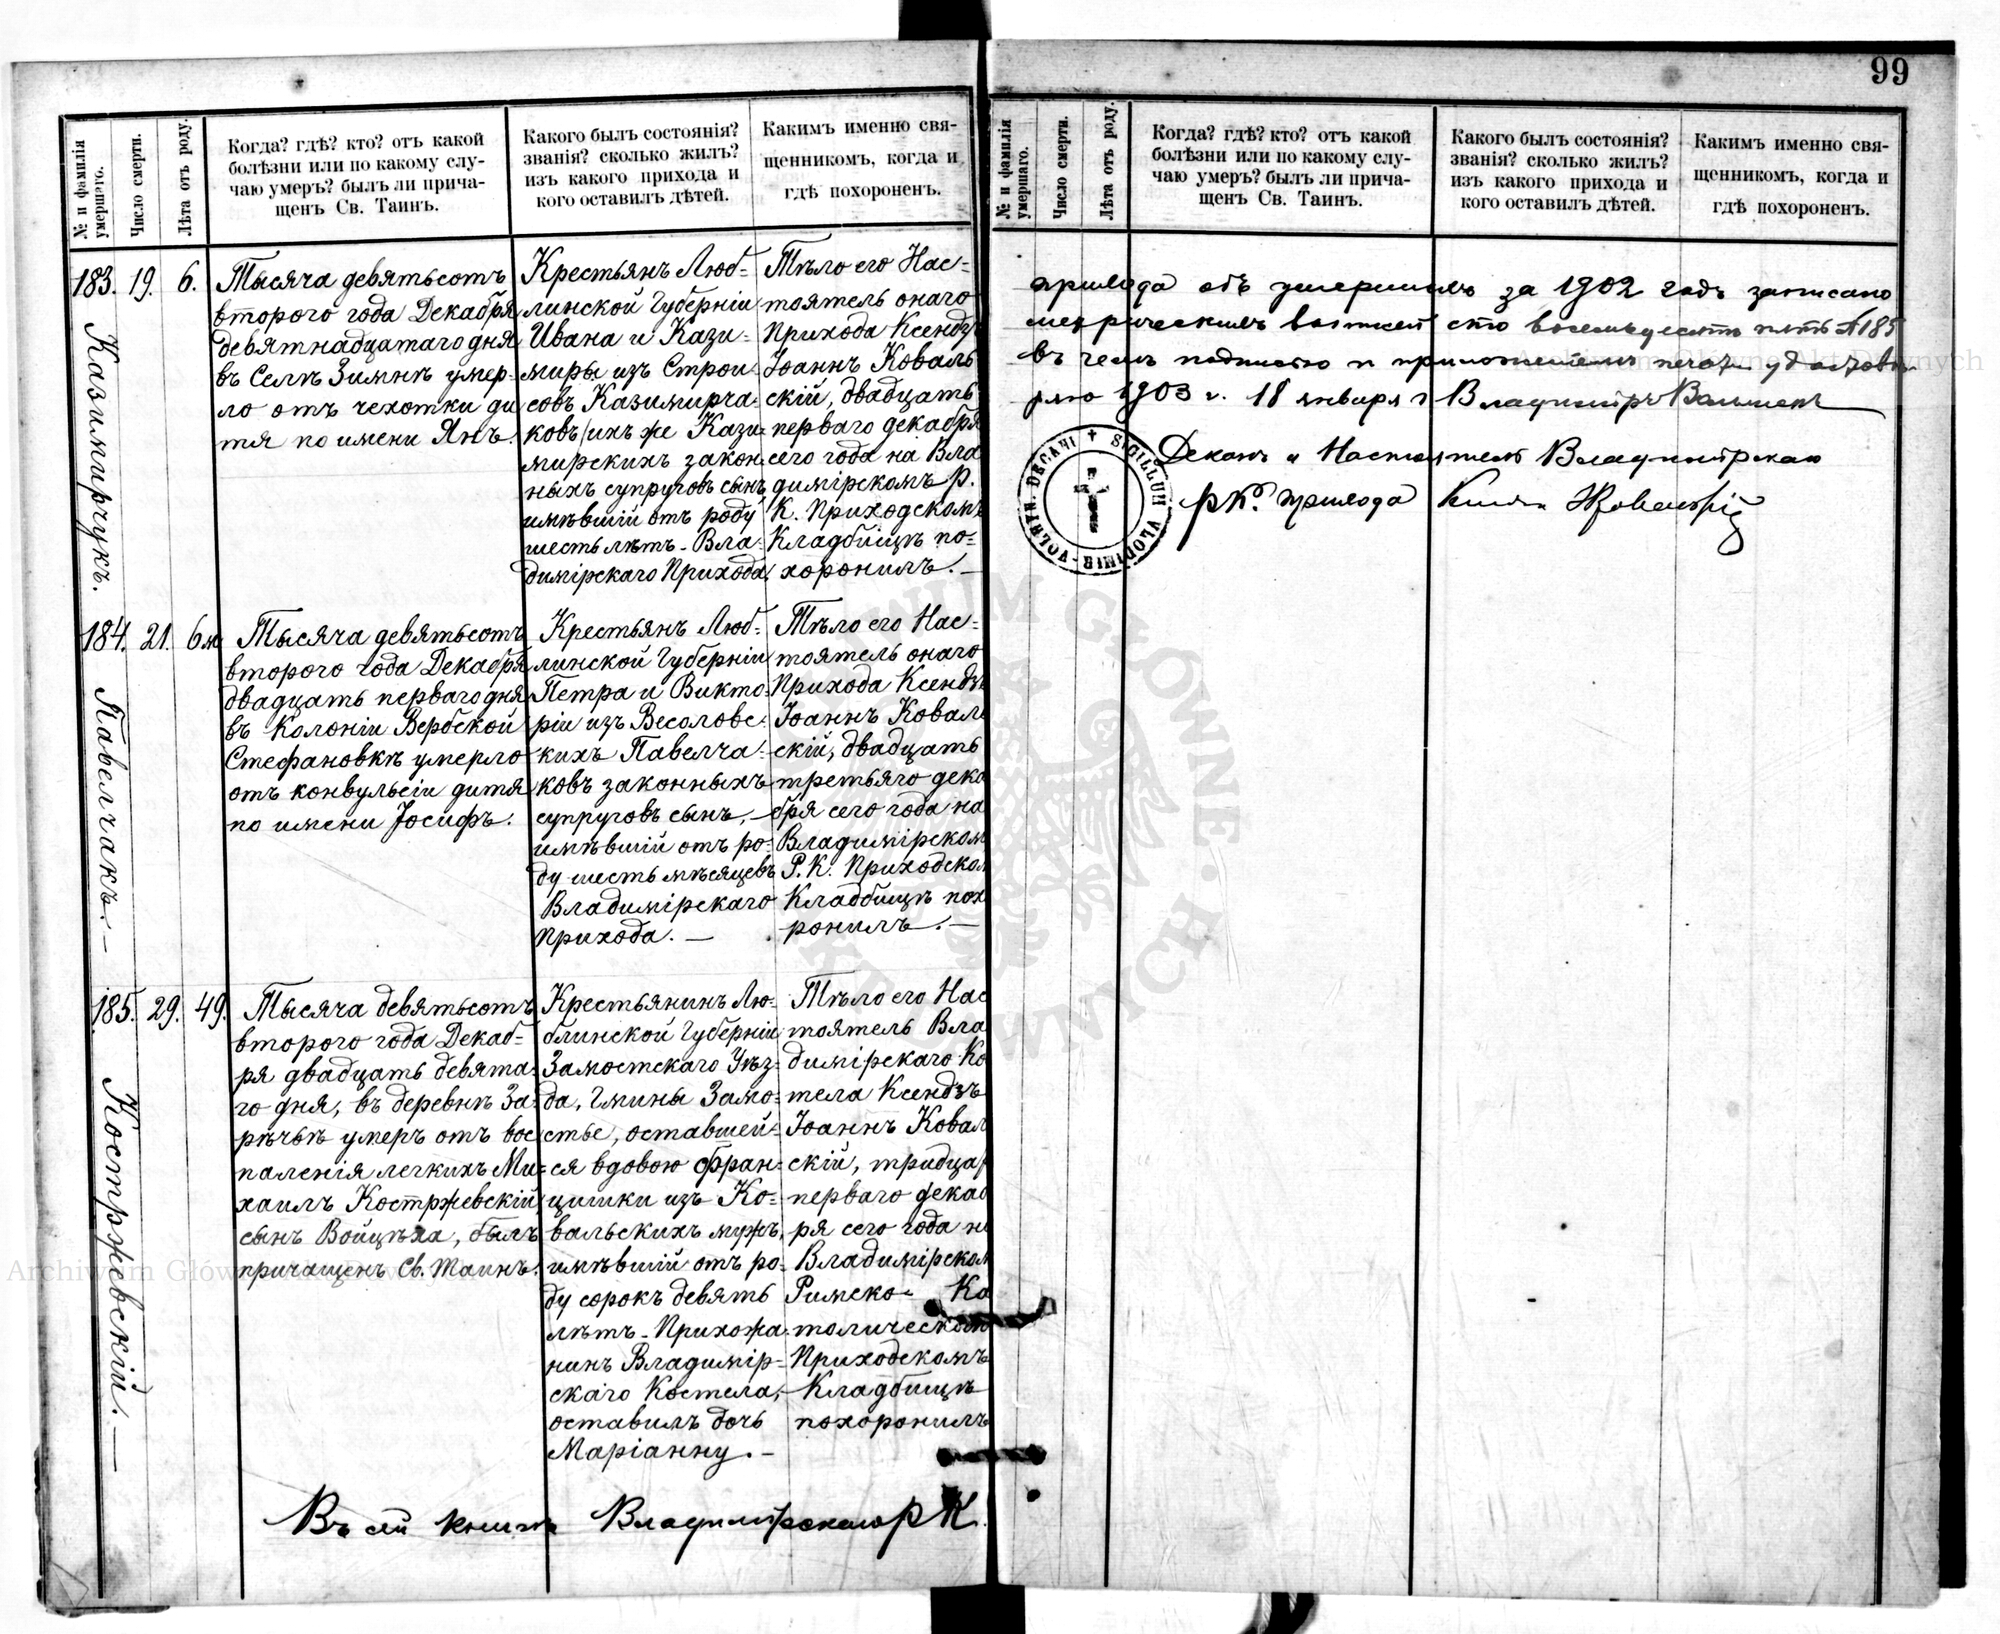 99
№ и фамилія умершаго.
Число смерти.
Лѣта отъ роду.
Когда? гдѣ? кто? отъ какой
болѣзни или по какому слу-
чаю умеръ? былъ ли прича-
щенъ Св. Таинъ.
Какого былъ состоянія?
званія? сколько жилъ?
изъ какого прихода и
кого оставилъ дѣтей.
Какимъ именно свя-
щенникомъ, когда и
гдѣ похороненъ.
183. 19. 6.
Казимирчукъ.
Тысяча девятьсотъ
втораго года Декабря
девятнадцатаго дня
въ Селѣ Зимнѣ умер-
ло отъ чехотки ди
тя по имени Янъ.
Крестьянъ Люб-
линской Губерніи
Ивана и Кази-
миры изъ Строи-
совъ Казимирча-
ковъ (ихъ же Кази-
мирскихъ закон-
ныхъ супруговъ сынъ
имѣвшій отъ роду
шесть лѣтъ - Вла-
димірскаго Прихода,
Тѣло его Нас-
тоятель онаго
Прихода Ксендзъ
Іоаннъ Коваль
скій, двадцать
перваго декабря
сего года на Вла
димірскомъ Р.
К. Приходскомъ
Кладбищѣ по-
хоронилъ. —
184. 21. 6м
Павелчакъ. —
Тысяча девятьсотъ
второго года Декабря
двадцать перваго дня
въ Колоніи Вербской
Стефановкѣ умерло
отъ конвульсіи дитя
по имени Іосифъ.
Крестьянъ Люб-
линской Губерніи
Петра и Викто-
ріи изъ Весоловс-
кихъ Павелча-
ковъ законныхъ
супруговъ сынъ, -
имѣвшій отъ ро-
ду шесть мѣсяцевъ
Владимірскаго
Прихода. —
Тѣло его Нас-
тоятель онаго
Прихода Ксендзъ
Іоаннъ Коваль
скій, двадцать
третьяго дека
бря сего года на
Владимірском
Р. К. Приходском
Кладбищѣ пох
ронилъ. —
185. 29. 49.
Костржевскій. —
Тысяча девятьсотъ
второго года Декаб-
ря двадцать девята-
го дня, въ деревнѣ За-
рѣчьѣ умеръ отъ вос
паленія легкихъ Ми-
хаилъ Костржевскій
сынъ Войцѣха, былъ
причащенъ Св. Таинъ.
Крестьянинъ Лю-
блинской Губерніи
Замостскаго Уѣз-
да, Гмины Замо-
стье, оставшей-
ся вдовою Фран-
цишки изъ Ко-
вальскихъ мужъ,
имѣвшій отъ ро-
ду сорокъ девять
лѣтъ - Прихожа-
нинъ Владимір-
скаго Костела,
оставилъ дочь
Маріанну. —
Тѣло его Нас
тоятель Вла
димірскаго Ко
тела Ксендзъ
Іоаннъ Ковал
скій, тридца
перваго декаб
ря сего года на
Владимірском
Римско- Ка
толическом
Приходскомъ
Кладбищѣ
похоронилъ
Въ сей книгѣ Владимірскаго Р К.
№ и фамилія умершаго.
Число смерти.
Лѣта отъ роду.
Когда? гдѣ? кто? отъ какой
болѣзни или по какому слу-
чаю умеръ? былъ ли прича-
щенъ Св. Таинъ.
Какого былъ состоянія?
званія? сколько жилъ?
изъ какого прихода и
кого оставилъ дѣтей.
Какимъ именно свя-
щенникомъ, когда и
гдѣ похороненъ.
прихода объ умершихъ за 1902 годъ записано
метрическихъ сто восемьдесятъ пять № 185
въ чемъ подписью и приложеніемъ печати удостовѣ
ряю 1903 г. 18 января г Владиміръ Волынск
Деканъ и Настоятель Владимірскаго
РК. прихода
SIGILLUM VLODIMIR-VOLYN. DECANI
ARCHIWUM GŁÓWNE AKT DAWNYCH
Archiwum Główne Akt Dawnych